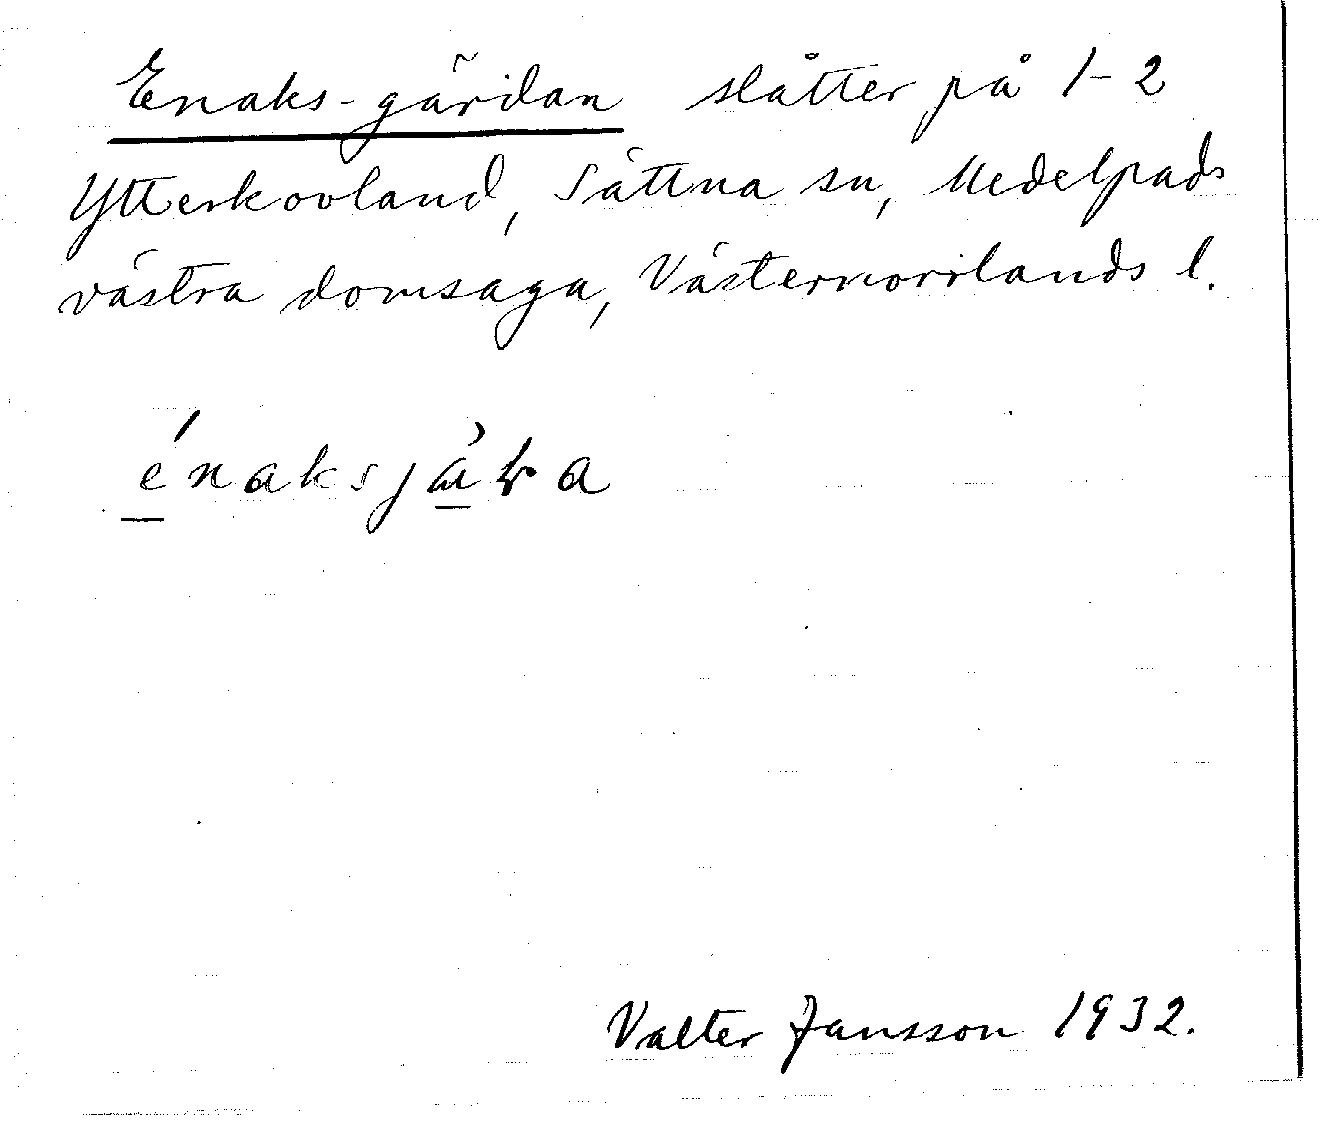 Enaks-gärdan slåtter på 1-2
Ytterkovland, Sättna sn, Medelpads
västra domsaga, Västernorrlands l.
énaksjà̱ɽa
Valter Jansson 1932.